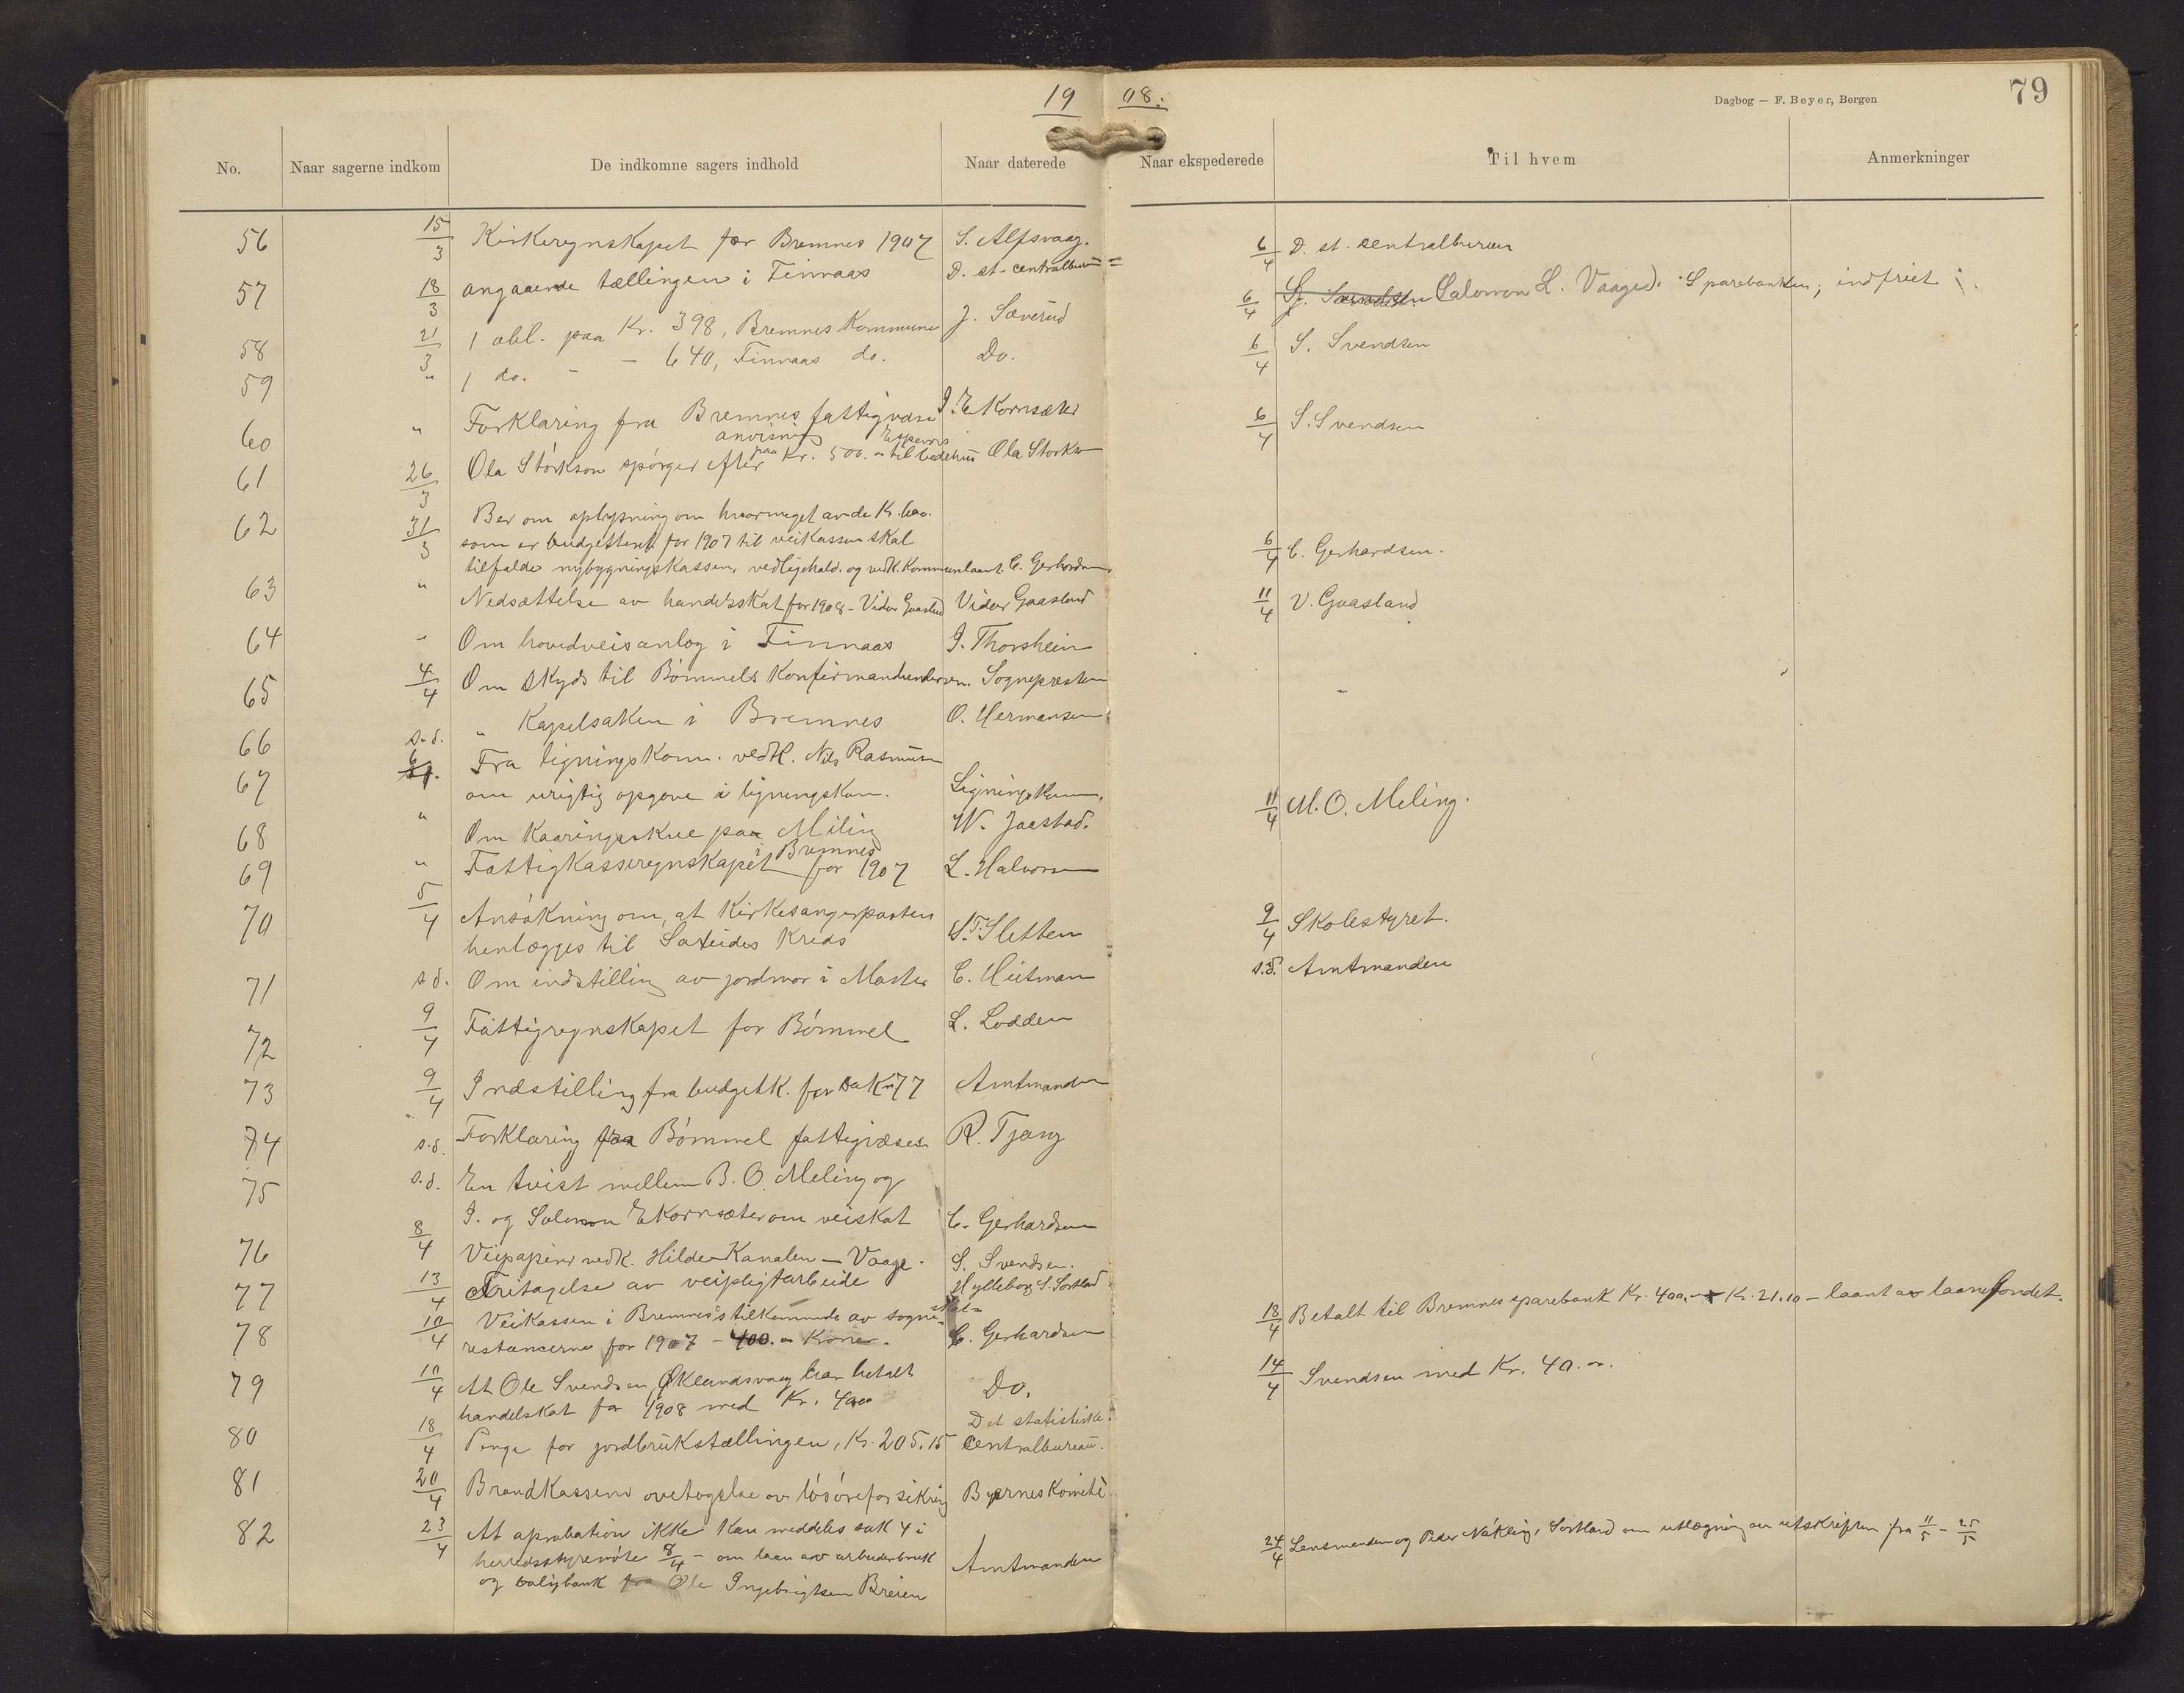 19 08.
Dagbog — F. Beyer, Bergen
79
No. Naar sagerne indkom De indkomne sagers indhold Naar daterede Naar ekspederede Til hvem Anmerkninger
56 15/3 Kirkeregnskapet for Bremnes 1907 S. Alfsvaag.
57 18/3 angaaende tællingen i Finnaas D. st. centralbureau 6/4 D. st. centralbureau
58 21/3 1 obl. paa Kr. 398, Bremnes Kommune J. Sæverud 6/4 Salomon L. Vaaged. Sparebanken; indfriet
59 " 1 do. - - 640, Finnaas do. Do. 6/4 S. Svendsen
60 " Forklaring fra Bremnes fattigvæsen I. Ekornsæter 6/4 S. Svendsen
61 26/3 Ola Størkson spørger efter anvisning paa Kr. 500.- til Espevær bedehus Ola Størks
62 31/3 Ber om oplysning om hvormeget av de Kr.
som er budgetteret for 1907 til veikassen skal
tilfalde nybygningskassen, vedligehold. og vedk. Kommunelaant. C. Gerhardsen 6/4 C. Gerhardsen.
63 " Nedsættelse av handelsskat for 1908 - Vidar Gaasland Vidar Gaasland 11/4 V. Gaasland
64 - Om hovedveisanlæg i Finnaas J. Thorsheim
65 4/4 Om Skyds til Bømmels Konfirmandunderv. Sognepresten
66 s.d. " Kapelsaken i Bremnes O. Hermansen
67 6/4 Fra ligningskom. vedk. Nils Rasmussen
om urigtig opgave i ligningskom. Ligningskom.
68 " Om Kaaringsskue paa Meling W. Jaastad. 11/4 M. O. Meling.
69 " Fattigkasseregnskapet i Bremnes for 1907 L. Halvorsen
70 5/4 Ansøkning om, at Kirkesangerposten
henlægges til Sakseides Kreds S. T. Sletten 9/4 Skolestyret.
71 s.d. Om indstilling av jordmor i Moster C. Heitman s.d. Amtmanden
72 9/4 Fattigregnskapet for Bømmel L. Lodden
73 9/4 Indstilling fra budgetk. for sak 77 Amtmanden
74 s.d. Forklaring fra Bømmel fattigvæsen R. Tjong
75 s.d. En tvist mellem B. O. Meling og
I. og Salomon Ekornsæter om veiskat C. Gerhardsen
76 8/4 Veipapirer vedk. Hilde-Kanalen - Vaage. S. Svendsen.
77 13/4 Fritagelse av veipligtarbeide Hylleborg S. Sortland
78 10/4 Veikassen i Bremnes's tilkommende av sogneskat=
restancerne for 1907 - 400.- Kroner. C. Gerhardsen 18/4 Betalt til Bremnes sparebank Kr. 400.- + Kr. 21.10 - laant av laanefondet.
79 10/4 At Ole Svendsen, Øklandsvaag har betalt
handelskat for 1908 med Kr. 40.00 Do. 14/4 Svendsen med Kr. 40.-.
80 18/4 Penge for jordbrukstællingen, Kr. 205.15 Det statistiske centralbureau.
81 20/4 Brandkassens overtagelse av løsøreforsikring Byernes Komité
82 23/4 At aprobation ikke kan meddeles sak 4 i
herredsstyremøte 8/4 - om laan av arbeiderbruk
og boligbank fra Ole Ingebrigtsen Breien Amtmanden 24/4 Lensmanden og Peder Nøkling, Sortland om utlægning av utskriften fra 11/5 - 25/5